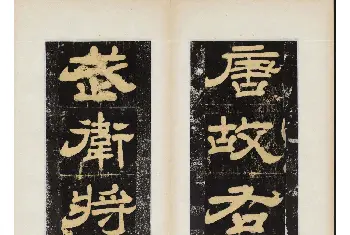 唐故右
武衛將